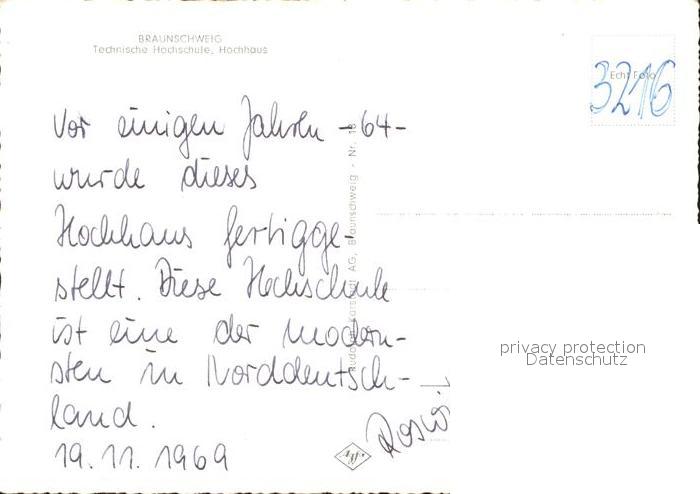 BRAUNSCHWEIG
Technische Hochschule, Hochhaus
Echt Foto
3216
Vor einigen Jahren -64-
wurde dieses
Hochhaus fertigge-
stellt. Diese Hochschule
ist eine der modern-
sten in Norddeutsch-
land.
19.11.1969
Rudolph Karstadt AG, Braunschweig - Nr. 18
privacy protection
Datenschutz